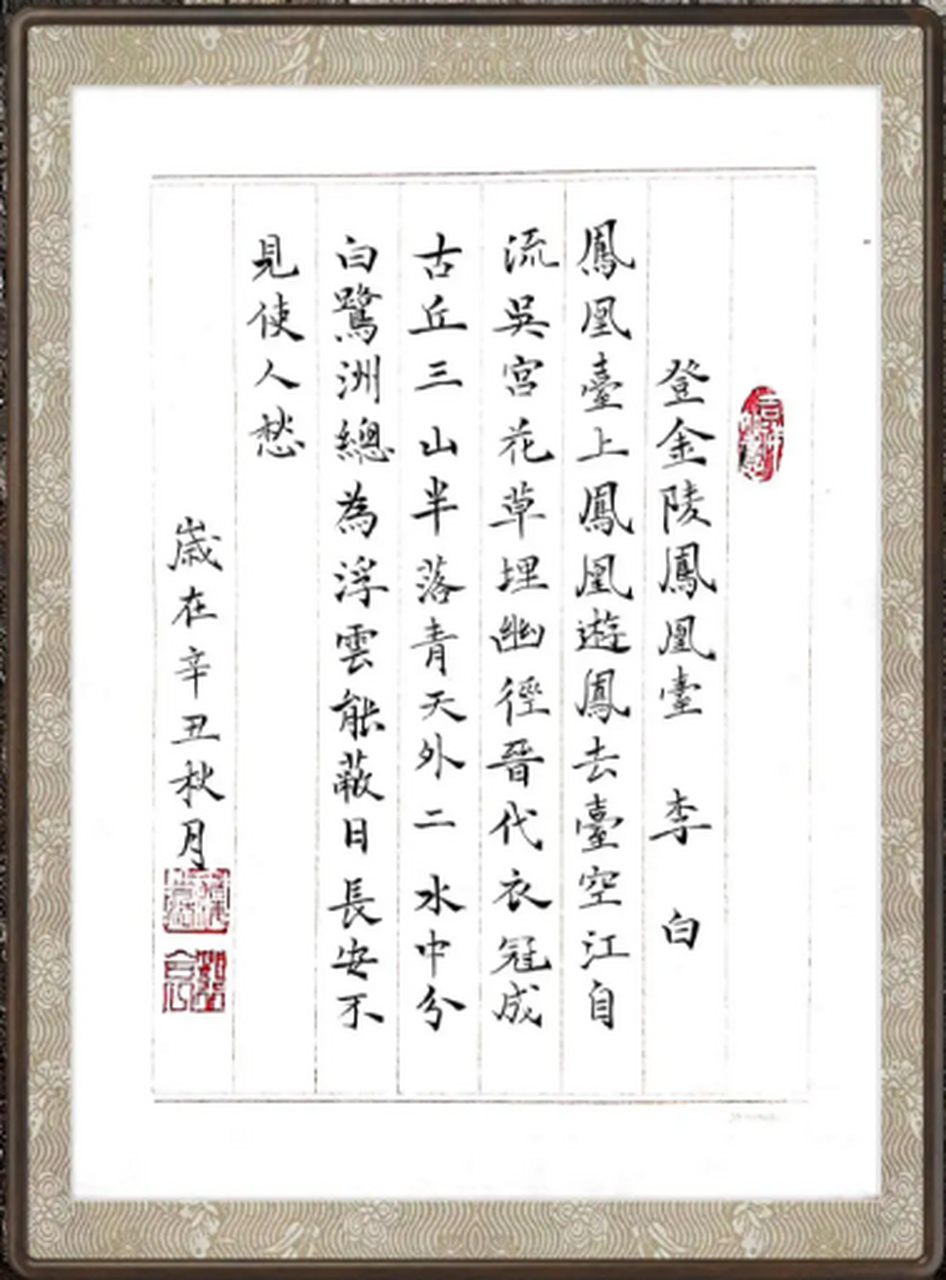 登金陵鳳凰臺 李白
鳳凰臺上鳳凰遊鳳去臺空江自
流吳宮花草埋幽徑晉代衣冠成
古丘三山半落青天外二水中分
白鷺洲總為浮雲能蔽日長安不
見使人愁
歲在辛丑秋月